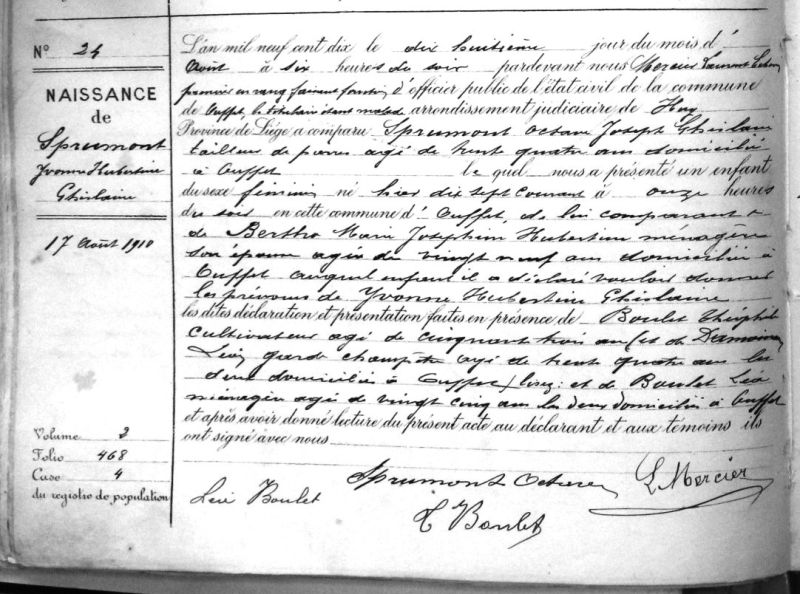 N° 24
NAISSANCE
de
Sprumont
Yvonne Hubertine
Ghislaine
17 Août 1910
Volume 3
Folio 468
Case 4
du registre de population
L'an mil neuf cent dix le dix huitième jour du mois d'
août à six heures du soir pardevant nous Mercier Laurent
premier en rang faisant fonction d'officier public de l'état civil de la commune
de Ouffet, le titulaire étant malade arrondissement judiciaire de Huy
Province de Liége, a comparu Sprumont Octave Joseph Ghislain
tailleur de pierres agé de trente quatre ans domicilié
à Ouffet lequel nous a présenté un enfant
du sexe féminin né hier dix sept courant à onze heures
du soir en cette commune d' Ouffet, de lui comparant &
de Bertho Marie Joséphine Hubertine ménagère
son épouse agée de vingt neuf ans domiciliée à
Ouffet auquel enfant il a déclaré vouloir donner
les prénoms de Yvonne Hubertine Ghislaine
les dites déclaration et présentation faites en présence de Boulet Théophile
cultivateur agé de cinquante trois ans et de Damoiseau
Léon garde champêtre agé de trente quatre ans les
deux domiciliés à Ouffet / lisez: et de Boulet Léa
ménagère agée de vingt cinq ans les deux domiciliés à Ouffet
et après avoir donné lecture du présent acte au déclarant et aux témoins ils
ont signé avec nous
Sprumont Octave L Mercier
Boulet
T Boulet